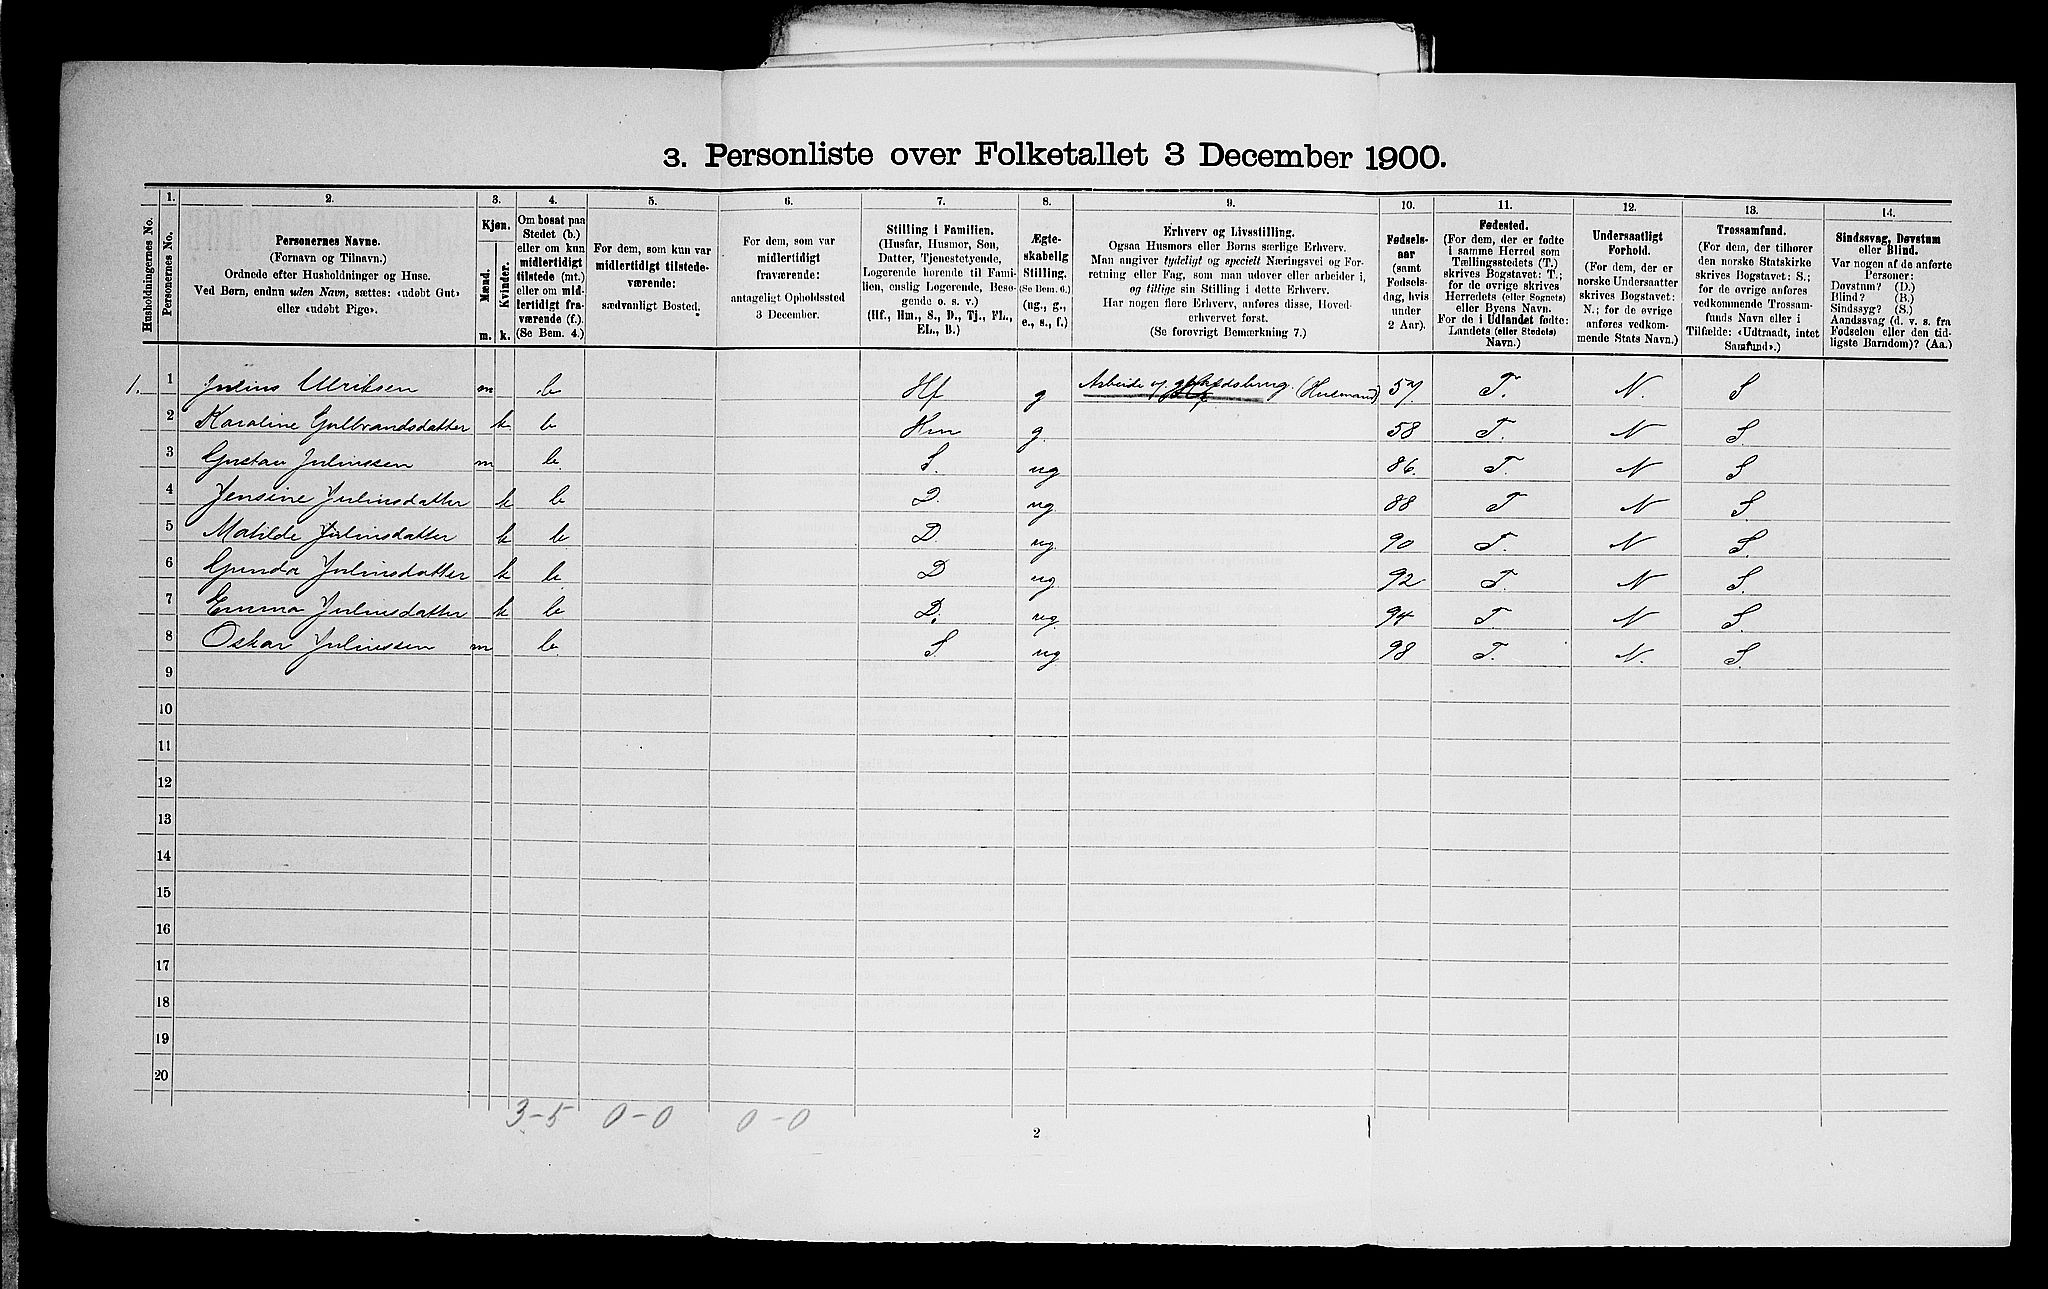 3. Personliste over Folketallet 3 December 1900.
Husholdningernes No.
1.
Personernes No.
2.
Personernes Navne.
(Fornavn og Tilnavn.)
Ordnede efter Husholdninger og Huse.
Ved Børn, endnu uden Navn, sættes: «udøbt Gut»
eller «udøbt Pige».
3.
Kjøn.
Mænd.
Kvinder.
m. k.
4.
Om bosat paa
Stedet (b.)
eller om kun
midlertidigt
tilstede (mt.)
eller om mid-
lertidigt fra-
værende (f.).
(Se Bem. 4.)
5.
For dem, som kun var
midlertidigt tilstede-
værende:
sædvanligt Bosted.
6.
For dem, som var
midlertidigt
fraværende:
antageligt Opholdssted
3 December.
7.
Stilling i Familien.
(Husfar, Husmor, Søn,
Datter, Tjenestetyende,
Logerende hørende til Fami-
lien, enslig Logerende, Besø-
gende o. s. v.)
(Hf., Hm., S., D., Tj., FL.,
EL., B.)
8.
Ægte-
skabelig
Stilling.
(Se Bem. 6.)
(ug., g.,
e., s., f.)
9.
Erhverv og Livsstilling.
Ogsaa Husmors eller Børns særlige Erhverv.
Man angiver tydeligt og specielt Næringsvei og For-
retning eller Fag, som man udøver eller arbeider i,
og tillige sin Stilling i dette Erhverv.
Har nogen flere Erhverv, anføres disse, Hoved-
erhvervet først.
(Se forøvrigt Bemærkning 7.)
10.
Fødsels-
aar
(samt
Fødsels-
dag, hvis
under
2 Aar).
11.
Fødested.
(For dem, der er fødte
i samme Herred som
Tællingsstedets (T.)
skrives Bogstavet: T.;
for de øvrige skrives
Herredets (eller Sognets)
eller Byens Navn.
For de i Udlandet fødte:
Landets (eller Stedets)
Navn.)
12.
Undersaatligt
Forhold.
(For dem, der er
norske Undersaatter
skrives Bogstavet:
N.; for de øvrige
anføres vedkom-
mende Stats Navn.)
13.
Trossamfund.
(For dem, der tilhører
den norske Statskirke
skrives Bogstavet: S.;
for de øvrige anføres
vedkommende Trossam-
funds Navn eller i
Tilfælde: «Udtraadt, intet
Samfund».)
14.
Sindssvag, Døvstum
eller Blind.
Var nogen af de anførte
Personer:
Døvstum? (D.)
Blind? (B.)
Sindssyg? (S.)
Aandssvag (d. v. s. fra
Fødselen eller den tid-
ligste Barndom)? (Aa.)
1. 1 Julius Ulriksen m b Hf g Arbeide v. (Huusmand) 57 T. N. S
2 Karoline Gulbrandsdatter k. b Hm g. 58 T. N S.
3 Gustav Juliussen m b. S. ug 86. T. N S
4 Jensine Juliusdatter k b D. ug 88 T N S.
5 Matilde Juliusdatter k b D. ug. 90 T. N S.
6 Gunda Juliusdatter k b D ug 92 T. N S.
7 Emma Juliusdatter k b D. ug. 94 T. N S.
8 Oskar Juliussen m b. S. ug 98 T. N. S.
9
10
11
12
13
14
15
16
17
18
19
20
3-5 0-0 0-0
2